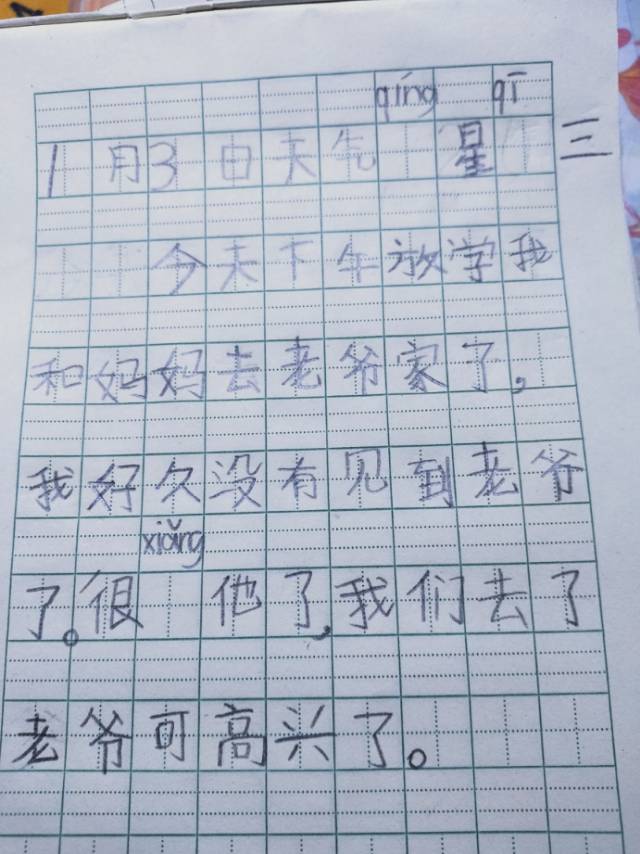 qíng qī
1月3日天气 星 三
今天下午放学我
和妈妈去老爷家了,
我好久没有见到老爷
xiǎng
了。很 他了,我们去了
老爷可高兴了。